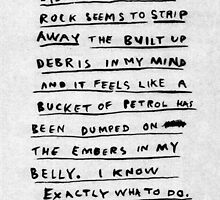 ROCK SEEMS TO STRIP
AWAY THE BUILT UP
DEBRIS IN MY MIND
AND IT FEELS LIKE A
BUCKET OF PETROL HAS
BEEN DUMPED ON
THE EMBERS IN MY
BELLY. I KNOW
EXACTLY WHA TO DO.